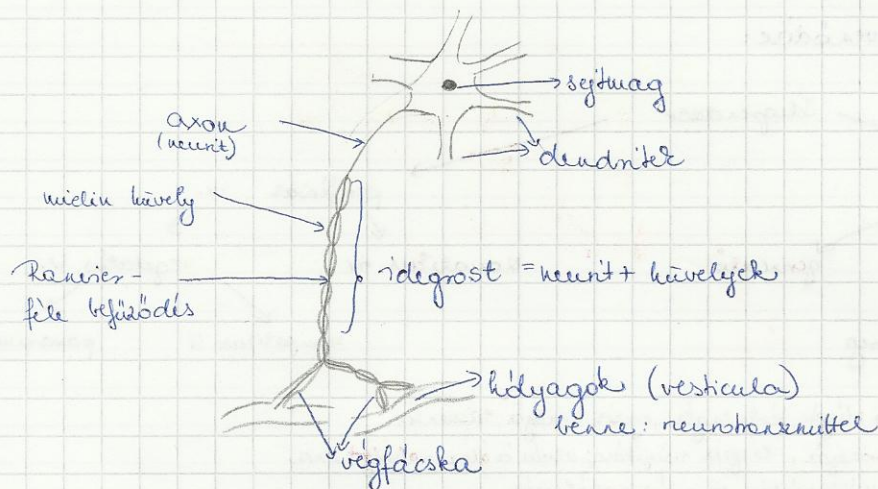 sejtmag
axon
(neurit)
dendritek
mielin hüvely
Ranvier-
féle befűződés
idegrost = neurit + hüvelyek
hólyagok (vesticula)
benne: neurotranszmitter
végfácska